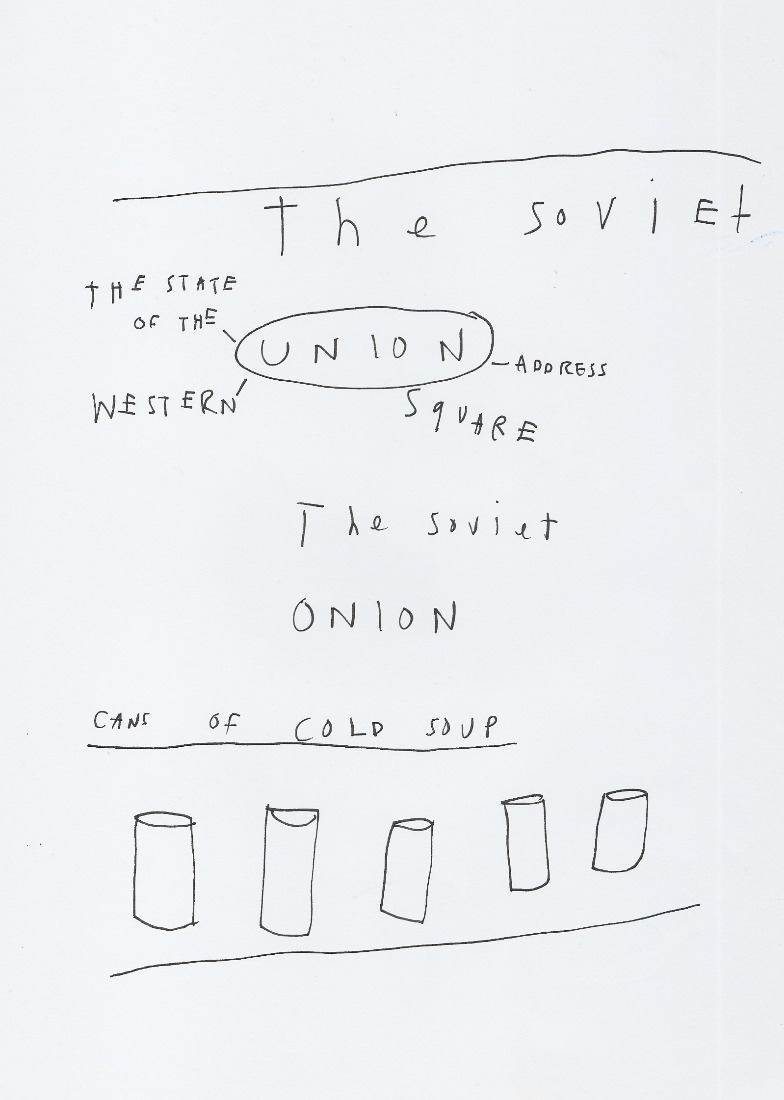 the soviEt
tHE STATE
OF THE
UNION
ADDRESS
WESTERN
SqUARE
The soviet
ONION
CANS OF COLD SOUP